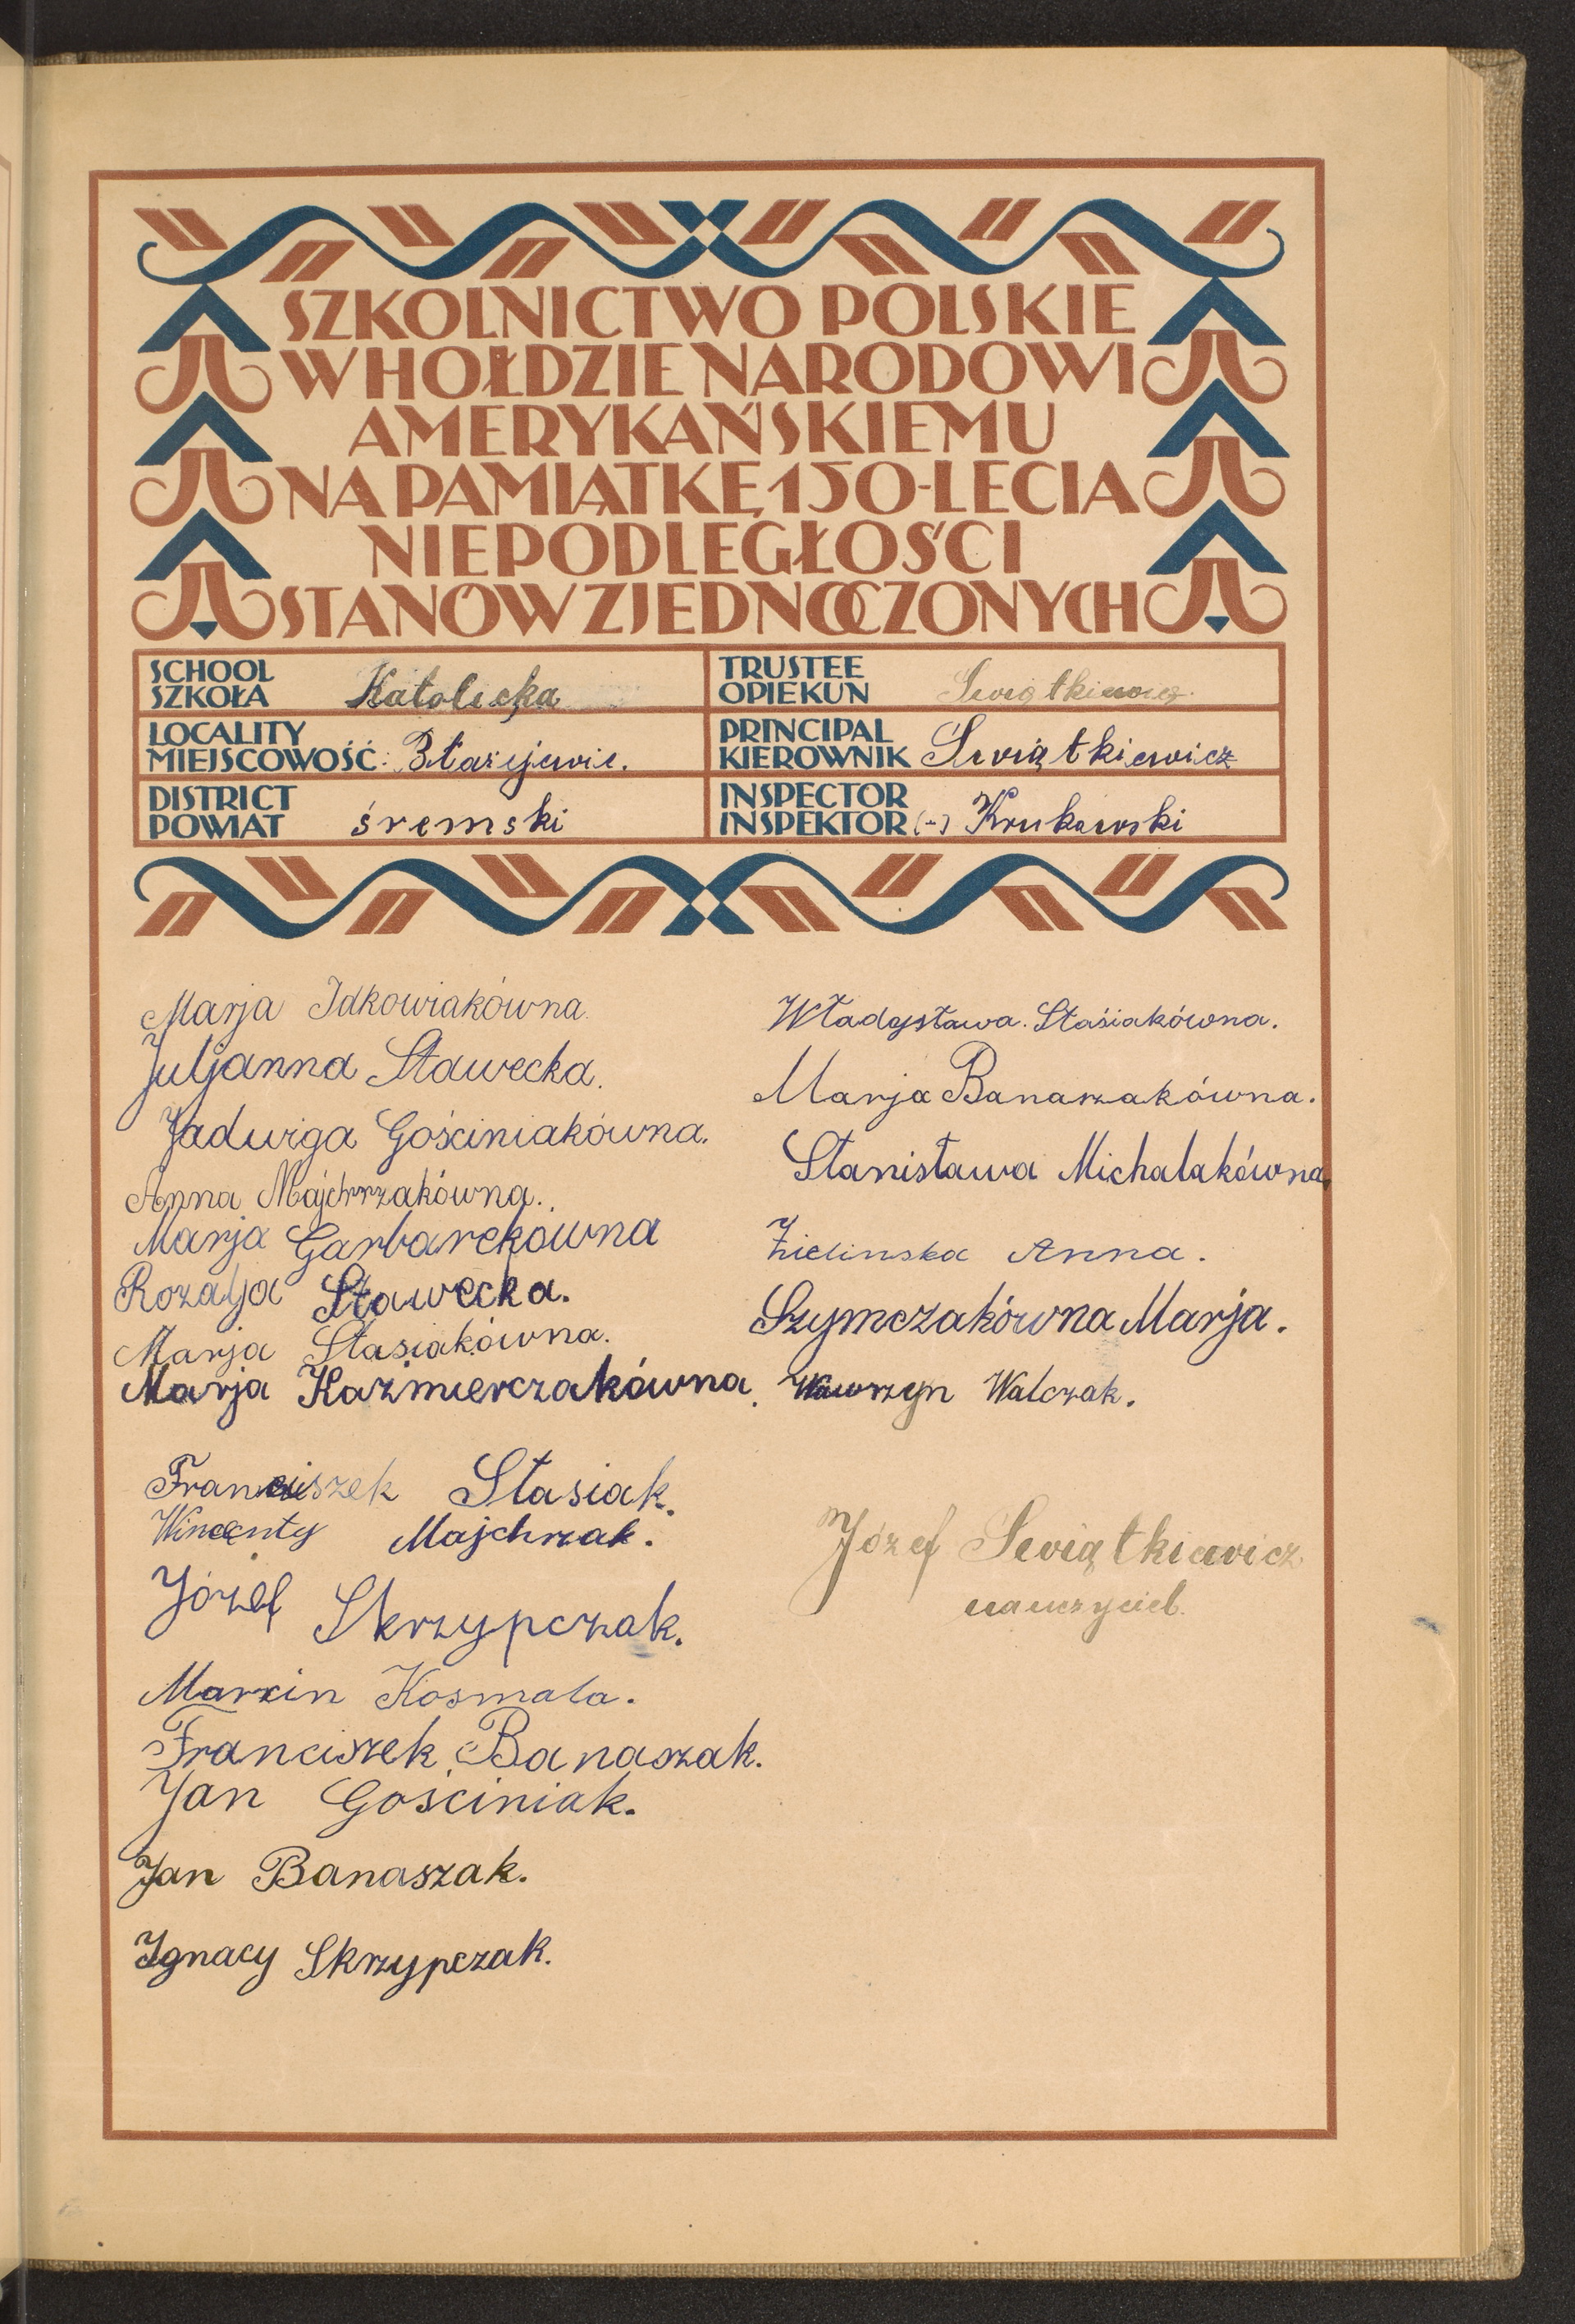 SZKOLNICTWO POLSKIE
W HOŁDZIE NARODOWI
AMERYKAŃSKIEMU
NA PAMIĄTKĘ 150-LECIA
NIEPODLEGŁOŚCI
STANÓW ZJEDNOCZONYCH
SCHOOL
SZKOŁA Katolicka
TRUSTEE
OPIEKUN Swiątkiewicz.
LOCALITY
MIEJSCOWOŚĆ: Błażejewie.
PRINCIPAL
KIEROWNIK Swiątkiewicz
DISTRICT
POWIAT śremski
INSPECTOR
INSPEKTOR (-) Krukowski
Marja Idkowiakówna.
Juljanna Stawecka.
Jadwiga Gościniakówna.
Anna Majchrzakówna.
Marja Garbarekówna
Rozalja Stawecka.
Marja Stasiakówna.
Marja Kaźmierczakówna.
Franciszek Stasiak.
Wincenty Majchrzak.
Józef Skrzypczak.
Marcin Kosmala.
Franciszek Banaszak.
Jan Gościniak.
Jan Banaszak.
Ignacy Skrzypczak.
Władysława Stasiakówna.
Marja Banaszakówna.
Stanisława Michalakówna.
Zielinska Anna.
Szymczakówna Marja.
Wawrzyn Walczak.
Józef Swiątkiewicz
nauczyciel.